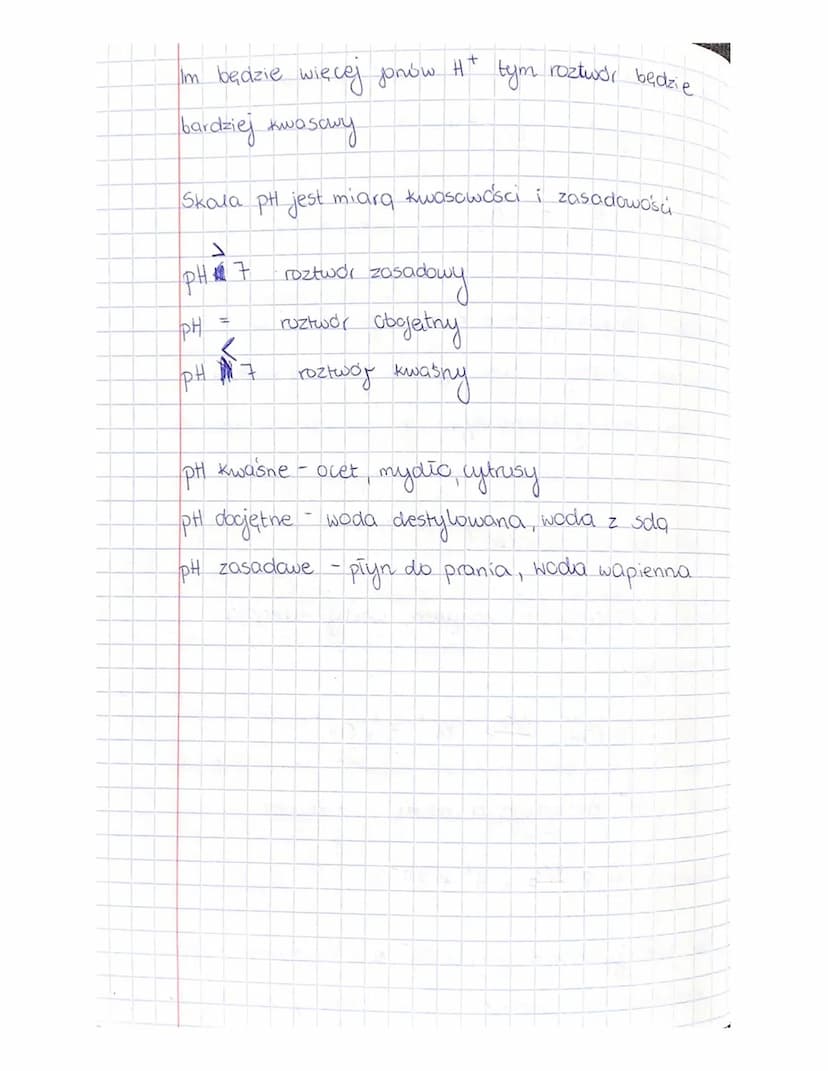 Im będzie więcej jonów H⁺ tym roztwór będzie
bardziej kwasowy
Skala pH jest miarą kwasowości i zasadowości
pH > 7 roztwór zasadowy
pH = roztwór obojętny
pH < 7 roztwór kwaśny
pH kwaśne - ocet, mydło, cytrusy
pH obojętne - woda destylowana, woda z solą
pH zasadowe - płyn do prania, woda wapienna